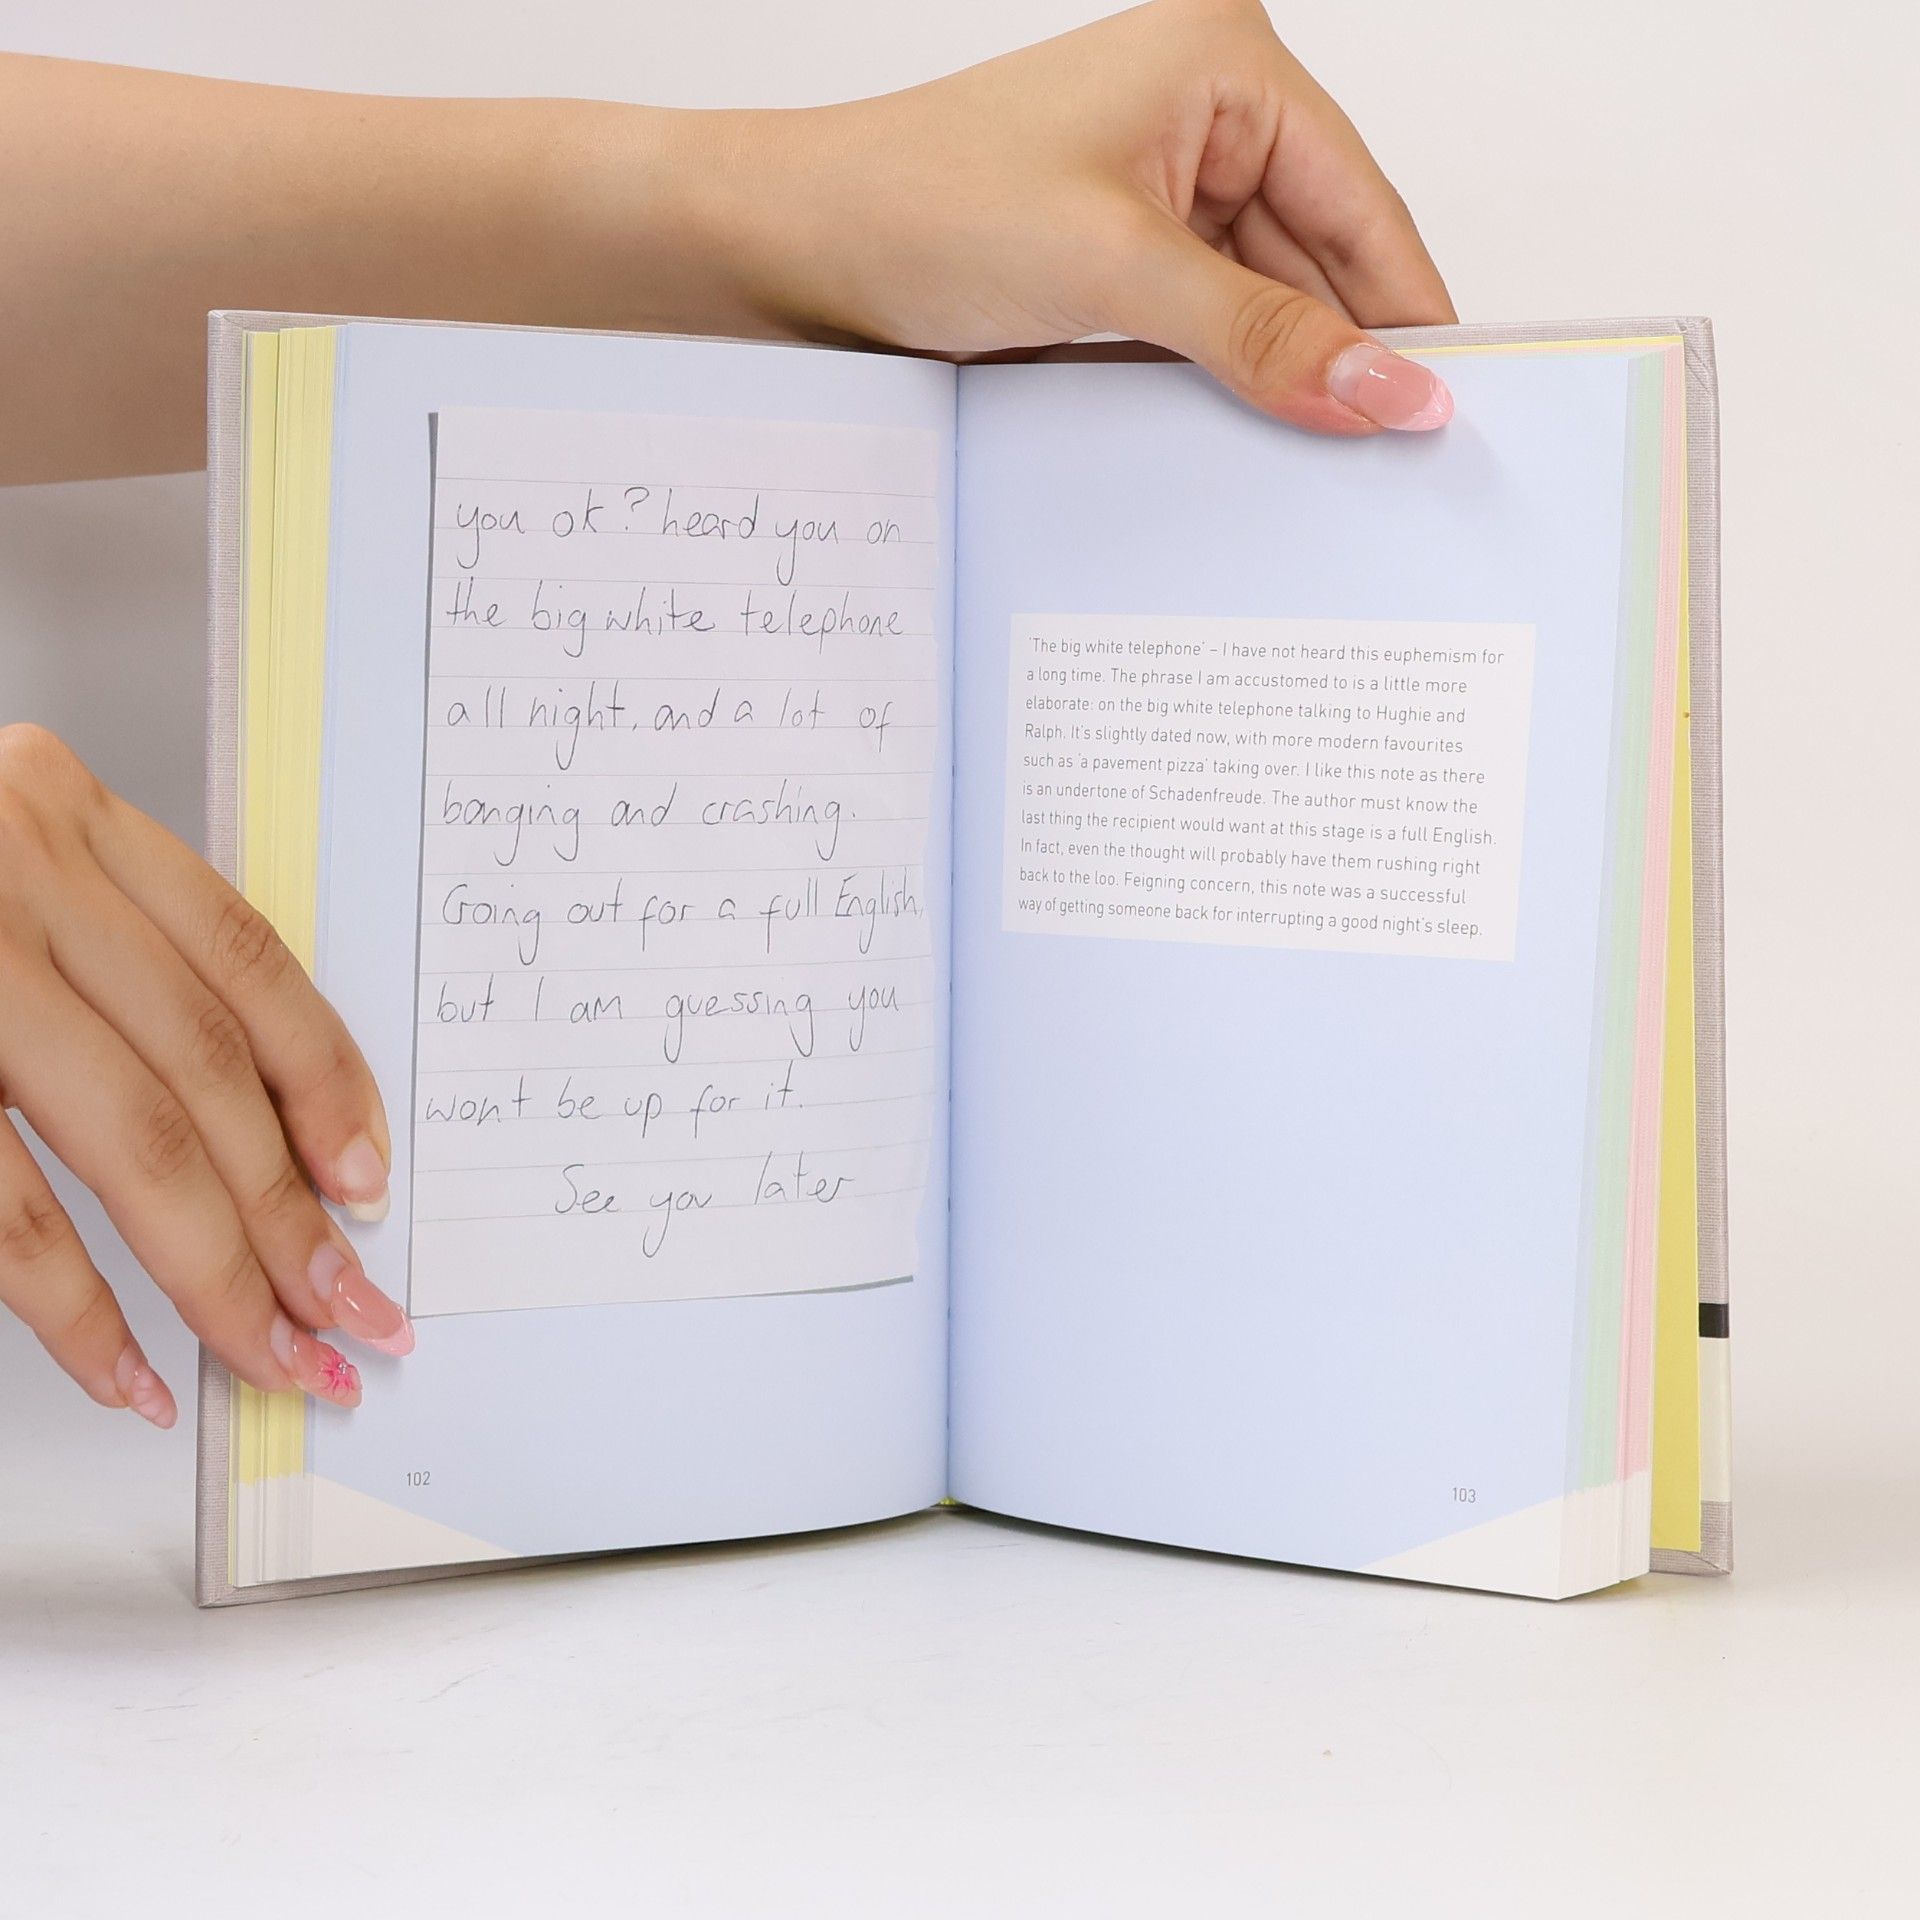 you ok? heard you on
the big white telephone
all night, and a lot of
banging and crashing.
Going out for a full English,
but I am guessing you
wont be up for it.
See you later
102
'The big white telephone' – I have not heard this euphemism for
a long time. The phrase I am accustomed to is a little more
elaborate: on the big white telephone talking to Hughie and
Ralph. It's slightly dated now, with more modern favourites
such as 'a pavement pizza' taking over. I like this note as there
is an undertone of Schadenfreude. The author must know the
last thing the recipient would want at this stage is a full English.
In fact, even the thought will probably have them rushing right
back to the loo. Feigning concern, this note was a successful
way of getting someone back for interrupting a good night's sleep.
103